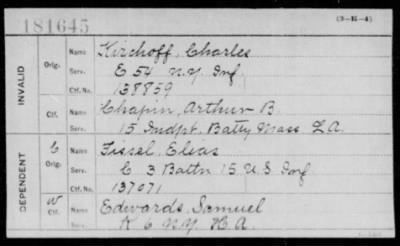 181645 (3-15-4)
INVALID
Orig. Name Kirchoff, Charles
Serv. E 54 N.Y. Inf.
Ctf. No. 138859
Ctf. Name Chapin, Arthur B.
Serv. 15 Indpt. Batty Mass L.A.
DEPENDENT
C Orig. Name Fissel, Elias
Serv. C 3 Battn 15 U.S Inf
Ctf. No. 137071
W Ctf. Name Edwards, Samuel
Serv. K 6 N.Y. H.A.